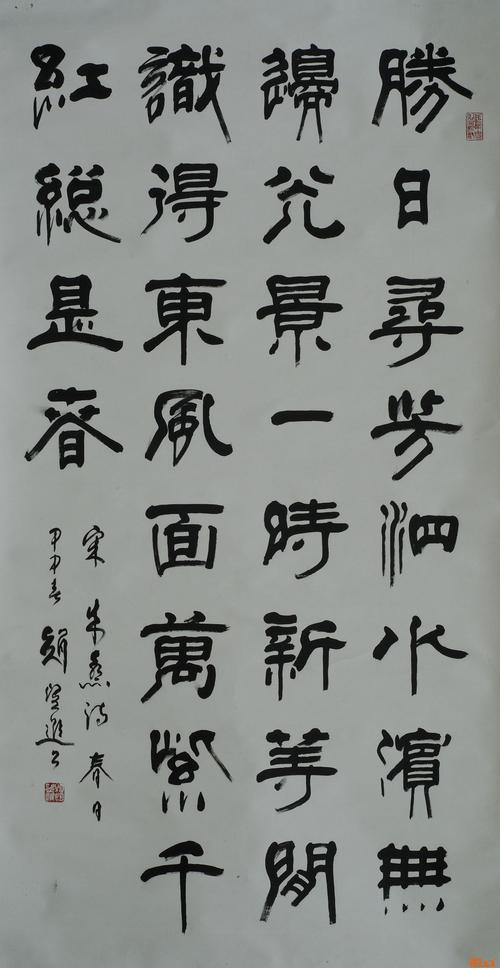 勝日尋芳泗水濱無
邊光景一時新等閒
識得東風面萬紫千
紅總是春
宋朱熹詩春日
甲申春趙